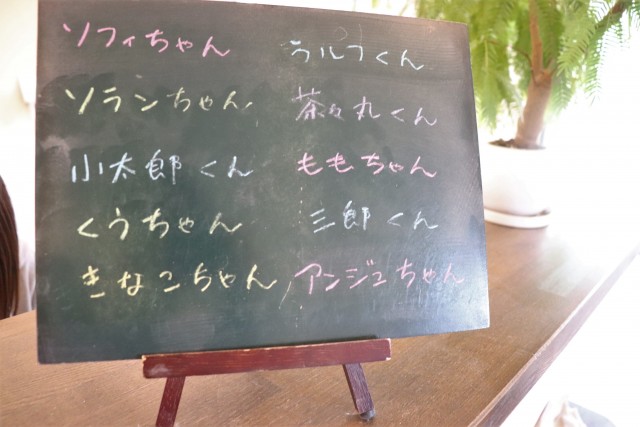 ソフィちゃん
ソランちゃん
小太郎くん
くうちゃん
きなこちゃん
ラルフくん
茶々丸くん
ももちゃん
三郎くん
アンジュちゃん